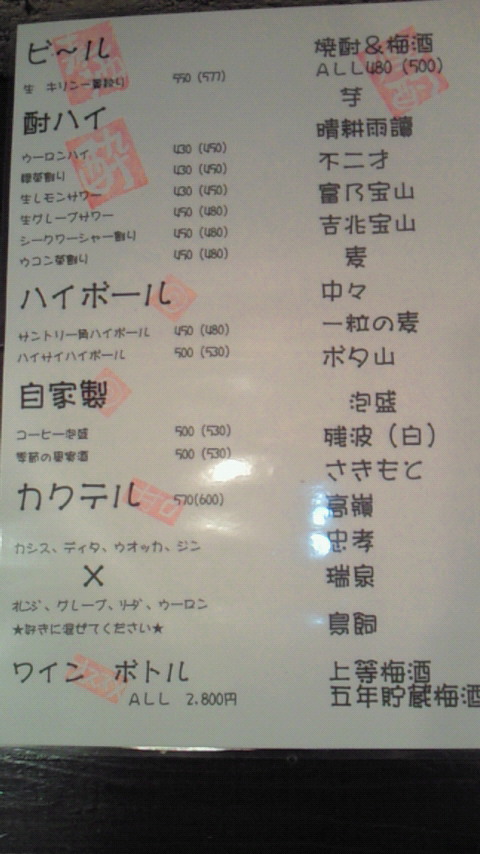 ビ～ル
生 キリン一番絞り 550 (577)
酎ハイ
ウーロンハイ 430 (450)
緑茶割り 430 (450)
生レモンサワー 430 (450)
生グレープサワー 450 (480)
シークワーシャー割り 450 (480)
ウコン茶割り 450 (480)
ハイボール
サントリー角ハイボール 450 (480)
ハイサイハイボール 500 (530)
自家製
コーヒー泡盛 500 (530)
季節の果実酒 500 (530)
カクテル 570(600)
カシス、ディタ、ウオッカ、ジン
×
オレンジ、グレープ、ソーダ、ウーロン
★好きに混ぜてください★
ワイン ボトル
ALL 2,800円
焼酎＆梅酒
ALL480 (500)
芋
晴耕雨讀
不二才
富乃宝山
吉兆宝山
麦
中々
一粒の麦
ボタ山
泡盛
残波（白）
さきもと
高嶺
忠孝
瑞泉
鳥飼
上等梅酒
五年貯蔵梅酒